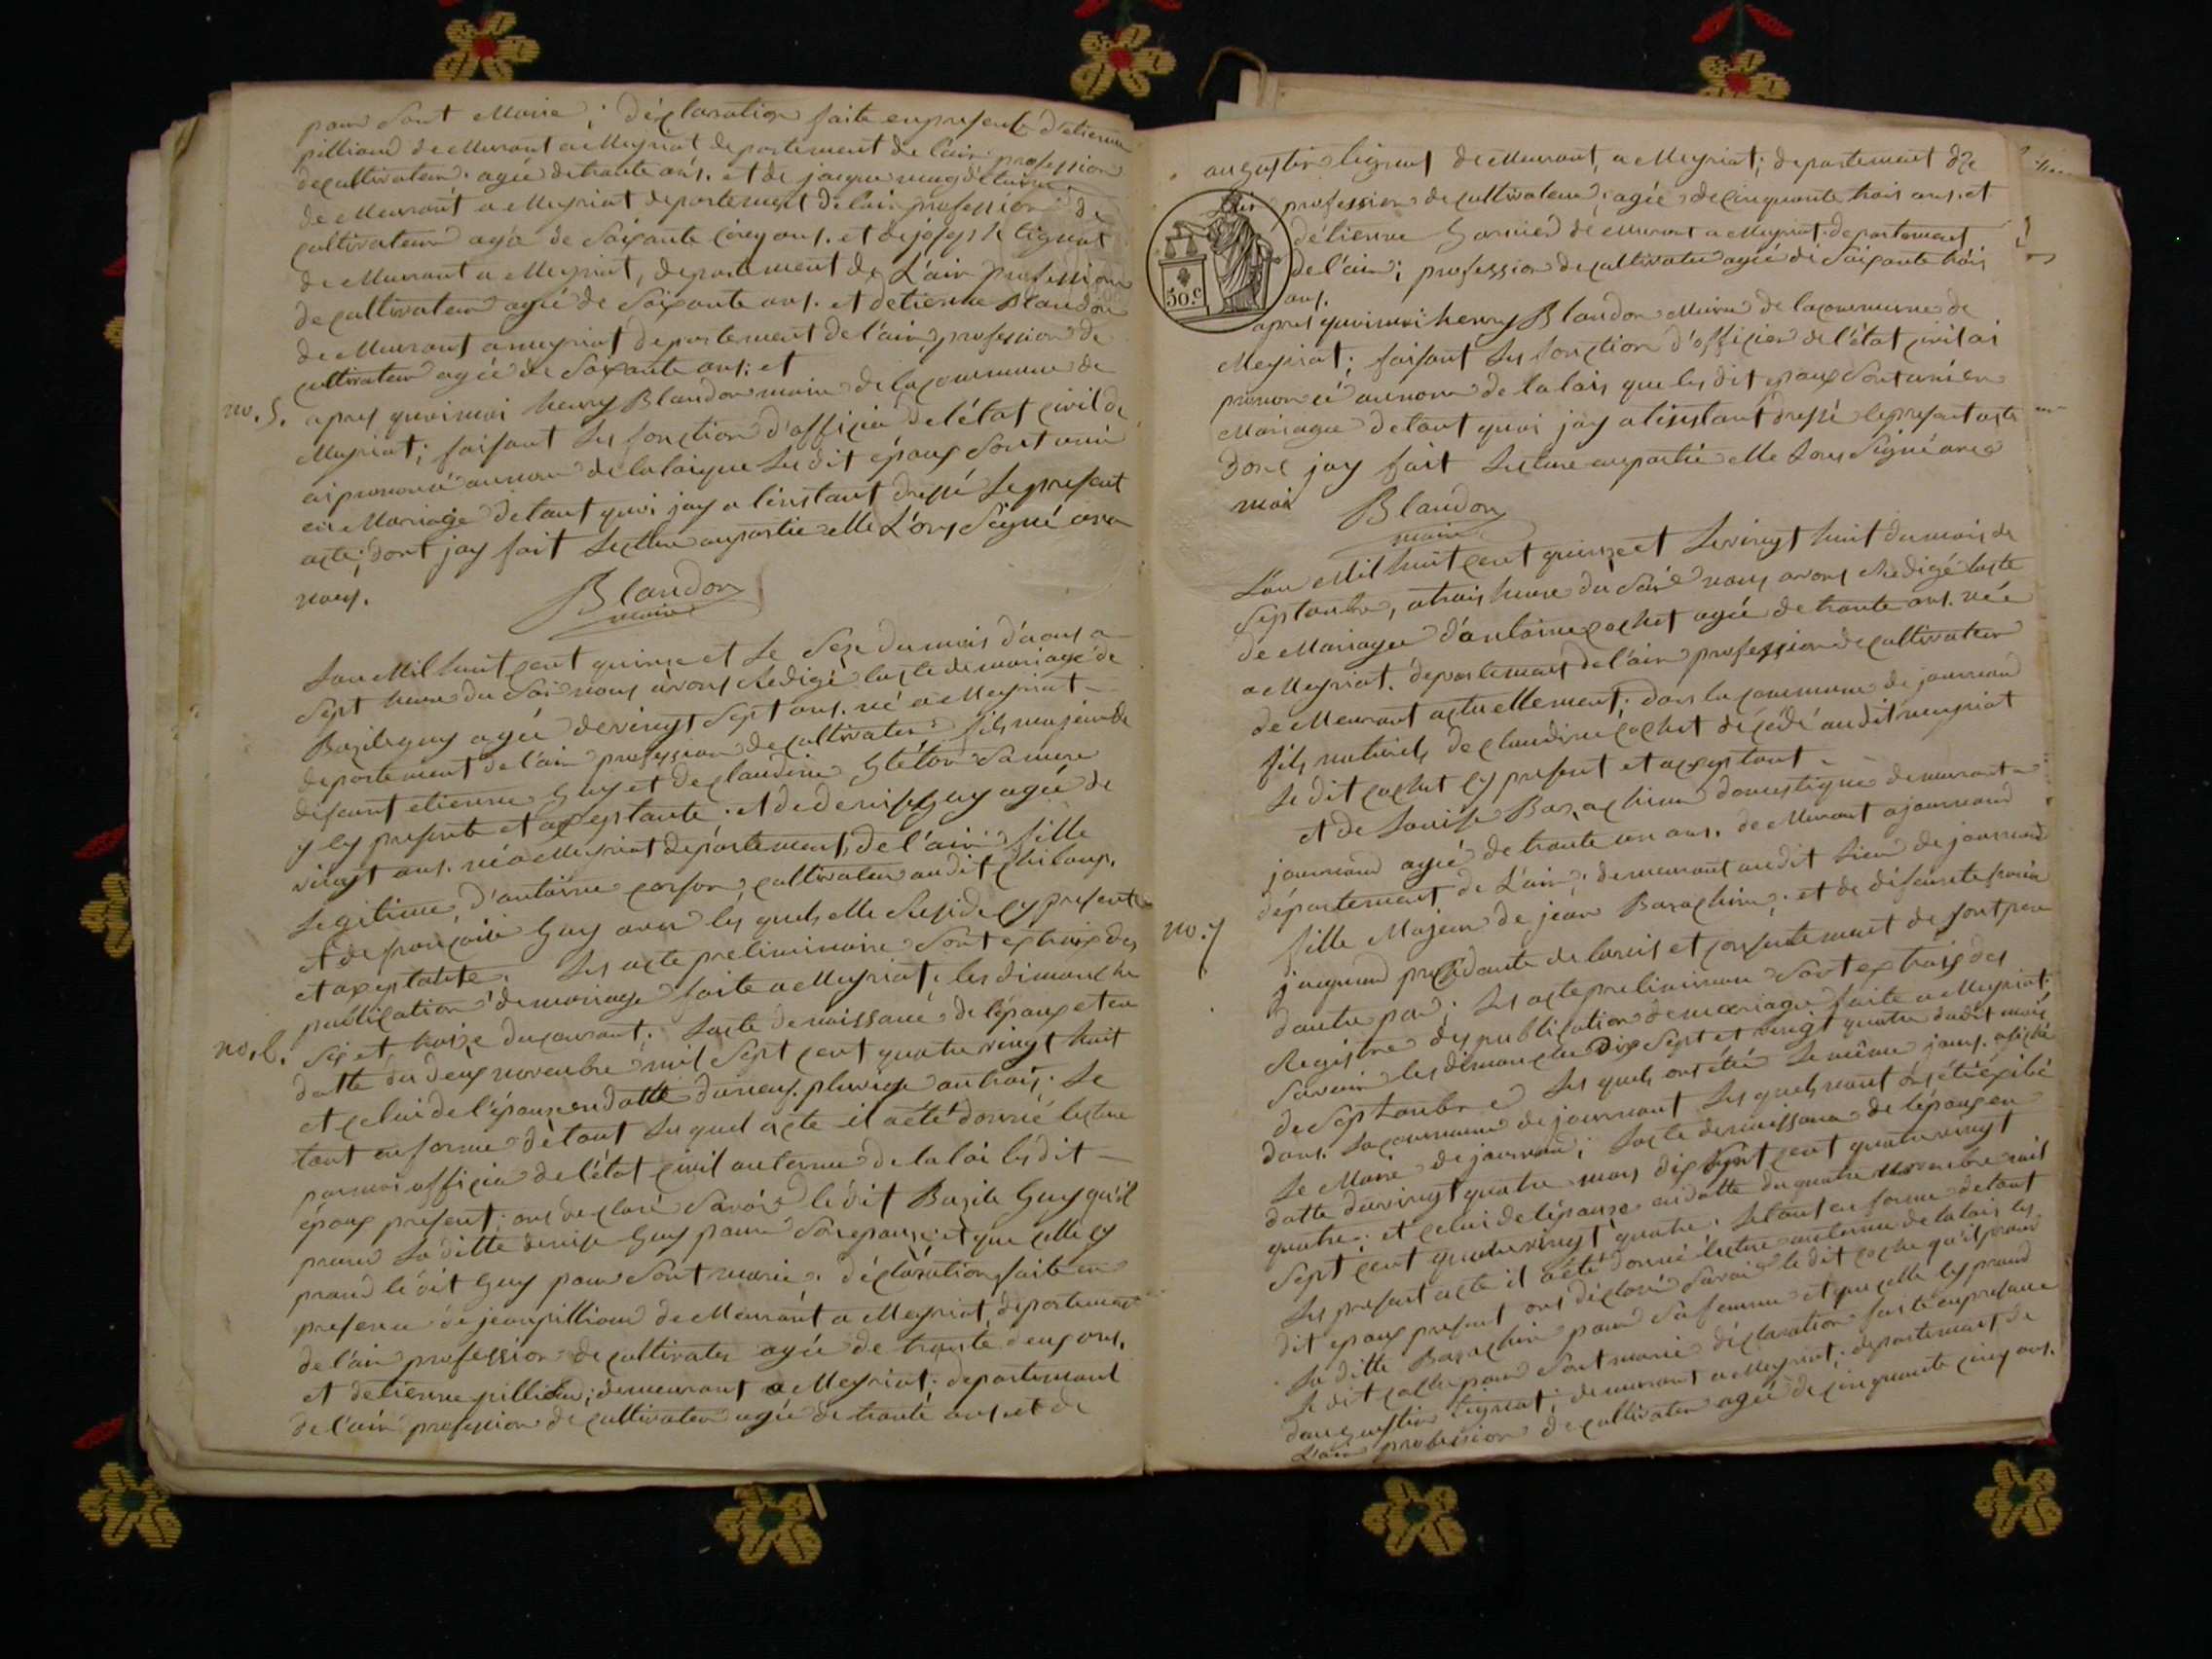 pour Sont Marie; déxlaration faite enpresence d'etienne
pilliond demeurant a Meyriat departement de l'ain profession
decultivateur. agée detrante ans. et de jaque
de Meurant a Meyriat departement delain profession de
cultivateur agée de Soixante cinq ans. et dejoseph tignat
de Meurant a Meyriat, departement de L'ain profession
de cultivateur agée de Soixante ans. et detienne Blandon
de Meurant ameyriat departement de l'ain, profession de
cultivateur agée de Soixante ans. et
no. 5. apres quoi moi henry Blandon maire de lacommune de
Meyriat; faisant les fonction d'officié de l'état civil de
ai prononcé aunom de laloi que les dit époux Sont unie
en Mariage detout quoi jay a linstant dressé le present
acte; dont jay fait lecture aupartie elle L'ons Signé avec
nous.
Blandon
maire
Lan Mil huit cent quinze et le Seze dumois d'aous a
Sept heure du Soir nous avons Redigé lacte demariage de
Bazile guy agée devingt Sept ans. né a Meyriat
departement de l'ain profession decultivateur fils majeur de
defeunt etienne Guy et declaudine Sa mere
y cy presente et aceptante. et de denise Guy agée de
vingt ans. née a Meyriat departement, de l'ain fille
Legitime, d'antoine cultivateur audit
et de françoise Guy avec les quels elle Reside cy presente
et aceptante. Les acte preliminaire Sont extraix des
publication demariage faite a Meyriat, les dimanche
no. 6. Six et traize ducourant. Lacte denaissance de l'époux est en
datte du deux novembre mil Sept cent quatre vingt huit
et celui de l'épouse en datte duneuf pluviose an trois. Le
tout en forme détout les quel acte il aété donné lecture
parmoi officié de l'état civil auterme de la loi les dit
époux present; ons declaré Savoir le dit Bazile Guy qu'il
prand la ditte denise Guy pour Son epouse; et que celle cy
prand le dit Guy pour Sont marie. déclaration faite en
presence de jean pilliond de Meurant a Meyriat departement
de l'ain profession de cultivater agée de trante deux ans.
et detienne pilliond; demeurant a Meyriat; departement
de l'ain profession de cultivateur agée de trante ans et de
augustin tignat de Meurant, a Meyriat; departement de
Lain profession de cultivateur; agée de cinquante trois ans. et
50.c
détienne Garnier de Meurant a Meyriat departement
de l'ain; profession de cultivateur agée de Soixante trois
ans.
apres quoi moi henry Blandon Maire de lacommune de
Meyriat; faisant les fonction d'officier de l'état civil ai
prononcé aunom de la lois que les dit epoux Sont unie en
Mariage detout quoi jay a linstant dressé le present acte
dont jay fait lecture aupartie elle Lons Signé avec
moi
Blandon
maire
L'an Mil huit cent quinze et le vingt huit dumois de
Septanbre, atrois heure du Soir nous avons Redigé lacte
de Mariage d'antoine cochet agée de trante ans. née
a Meyriat. departement de l'ain profession de cultivateur
de Meurant actuellement; dans la commune de journand
fils naturels de claudine cochet décédé audit meyriat
le dit cochet cy present et aceptant
et de Louise Barachin domestique demeurant a
journand agée de trante un ans. de Meurant a journand
département de L'ain; demeurant audit lieu de journand
no. 7 fille Majeur de jean Barachin; et de défeunte
de lavis et consentement de sont pere
dautre par; Les acte preliminaire Sont extraix des
Registre des publication de mariage faite a Meyriat
Savoir les dimanche Dix Sept et vingt quatre dudit mois
de Septanbre Les quels ons été le même jour. afiché
dans. la commune de journant Les quels nous ons été exibé
le Maire de journand; Lacte denaissance de lépoux en
datte duvingt quatre mars dix Sept cent quatre vingt
quatre; et celui de lépouse en datte du quatre Novembre mil
Sept cent quatre vingt quatre. Le tout en forme de tout
Les present acte il a été donné lecture auterme de la lois les
dit epoux present ons déclaré Savoir le dit coche qu'il prand
la ditte Barachin pour Sa femme et que celle cy prand
le dit pour Sont marie déclaration faite enpresence
daugustin tignat; demeurant a Meyriat; departement de
L'ain profession de cultivateur agée de cinquante cinq ans.